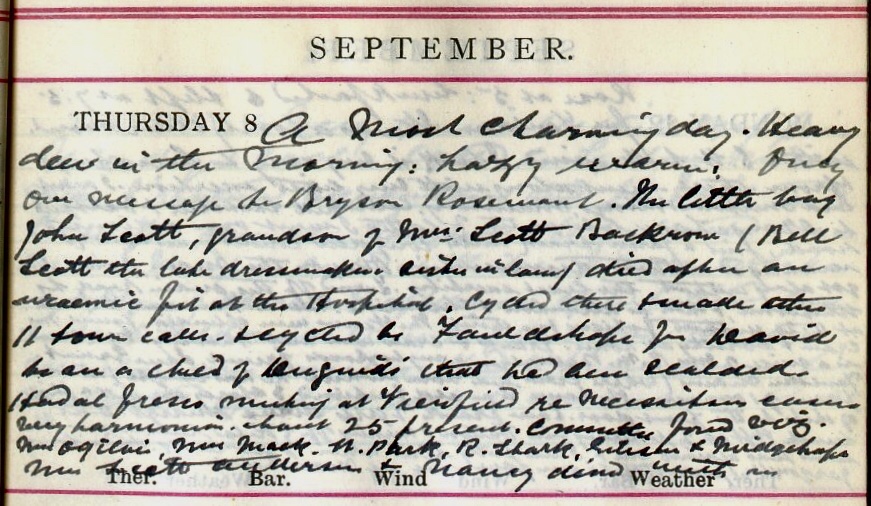 SEPTEMBER.
THURSDAY 8 A Most charming day. Heavy
dew in the Morning: hazzy warm: Only
one message to Bryson Rosemount. The little boy
John Scott, grandson of Mrs. Scott Backrow (Bell
Scott the late dressmakers sister in law) died after an
uraemic fit at the Hospital. Cycled there & made other
11 town calls. & cycled to Fauldshope for David
to see a child of that had been scalded.
Had a meeting at re cases
very harmonious. about 25 present. Committee formed viz.
Mrs Ogilvie, Mrs Mack. W. Park, R. &
Mrs Scott Anderson & Nancy dined with me
Ther. Bar. Wind Weather